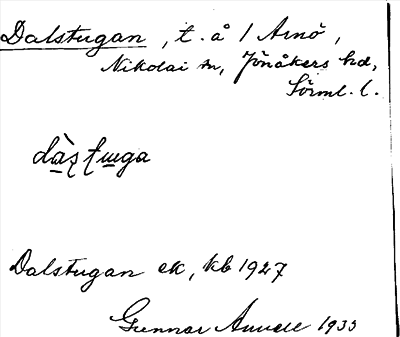 Dalstugan, t. å 1 Arnö,
Nikolai sn, Jönåkers hd,
Sörml. l.
Dalstugan ek, kb 1927
Gunnar 1933